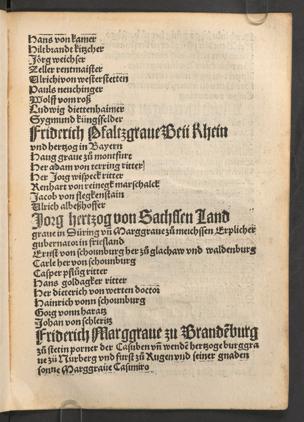 Hans von kamer
Hiltbrandt kitzcher
Jörg weichser
Zeller rentmaister
Ulrich von westerstetten
Pauls neuchinger
Wolff vom roß
Ludwig diettenhaimer
Sygmund küngsfelder
Friderich Pfaltzgraue Beii Rhein
vnd hertzog in Bayern
Haug graue zu montfort
Her adam von terring ritter
Her Jorg wispeck ritter
Renhart von reinegk marschalck
Jacob von flegkenstain
Ulrich albeßhoffer
Jorg hertzog von Sachssen Land
graue in Düring vn̄ Marggraue zu meichssen Erplicher
gubernator in friesland
Ernst von schounburg her zu glachaw vnd waldenburg
Carle her von schounburg
Casper pflüg ritter
Hans goldagker ritter
Her dieterich von werten doctor
Hainrich vonn schounburg
Gorg vonn haratz
Johan von schleritz
Friderich Marggraue zu Brandēburg
zu stetin pomer der Casuben vn̄ wendē hertzoge burggra
ue zu Nürberg vnd furst zu Rugen vnd seiner gnaden
sonne Marggraue Casimiro